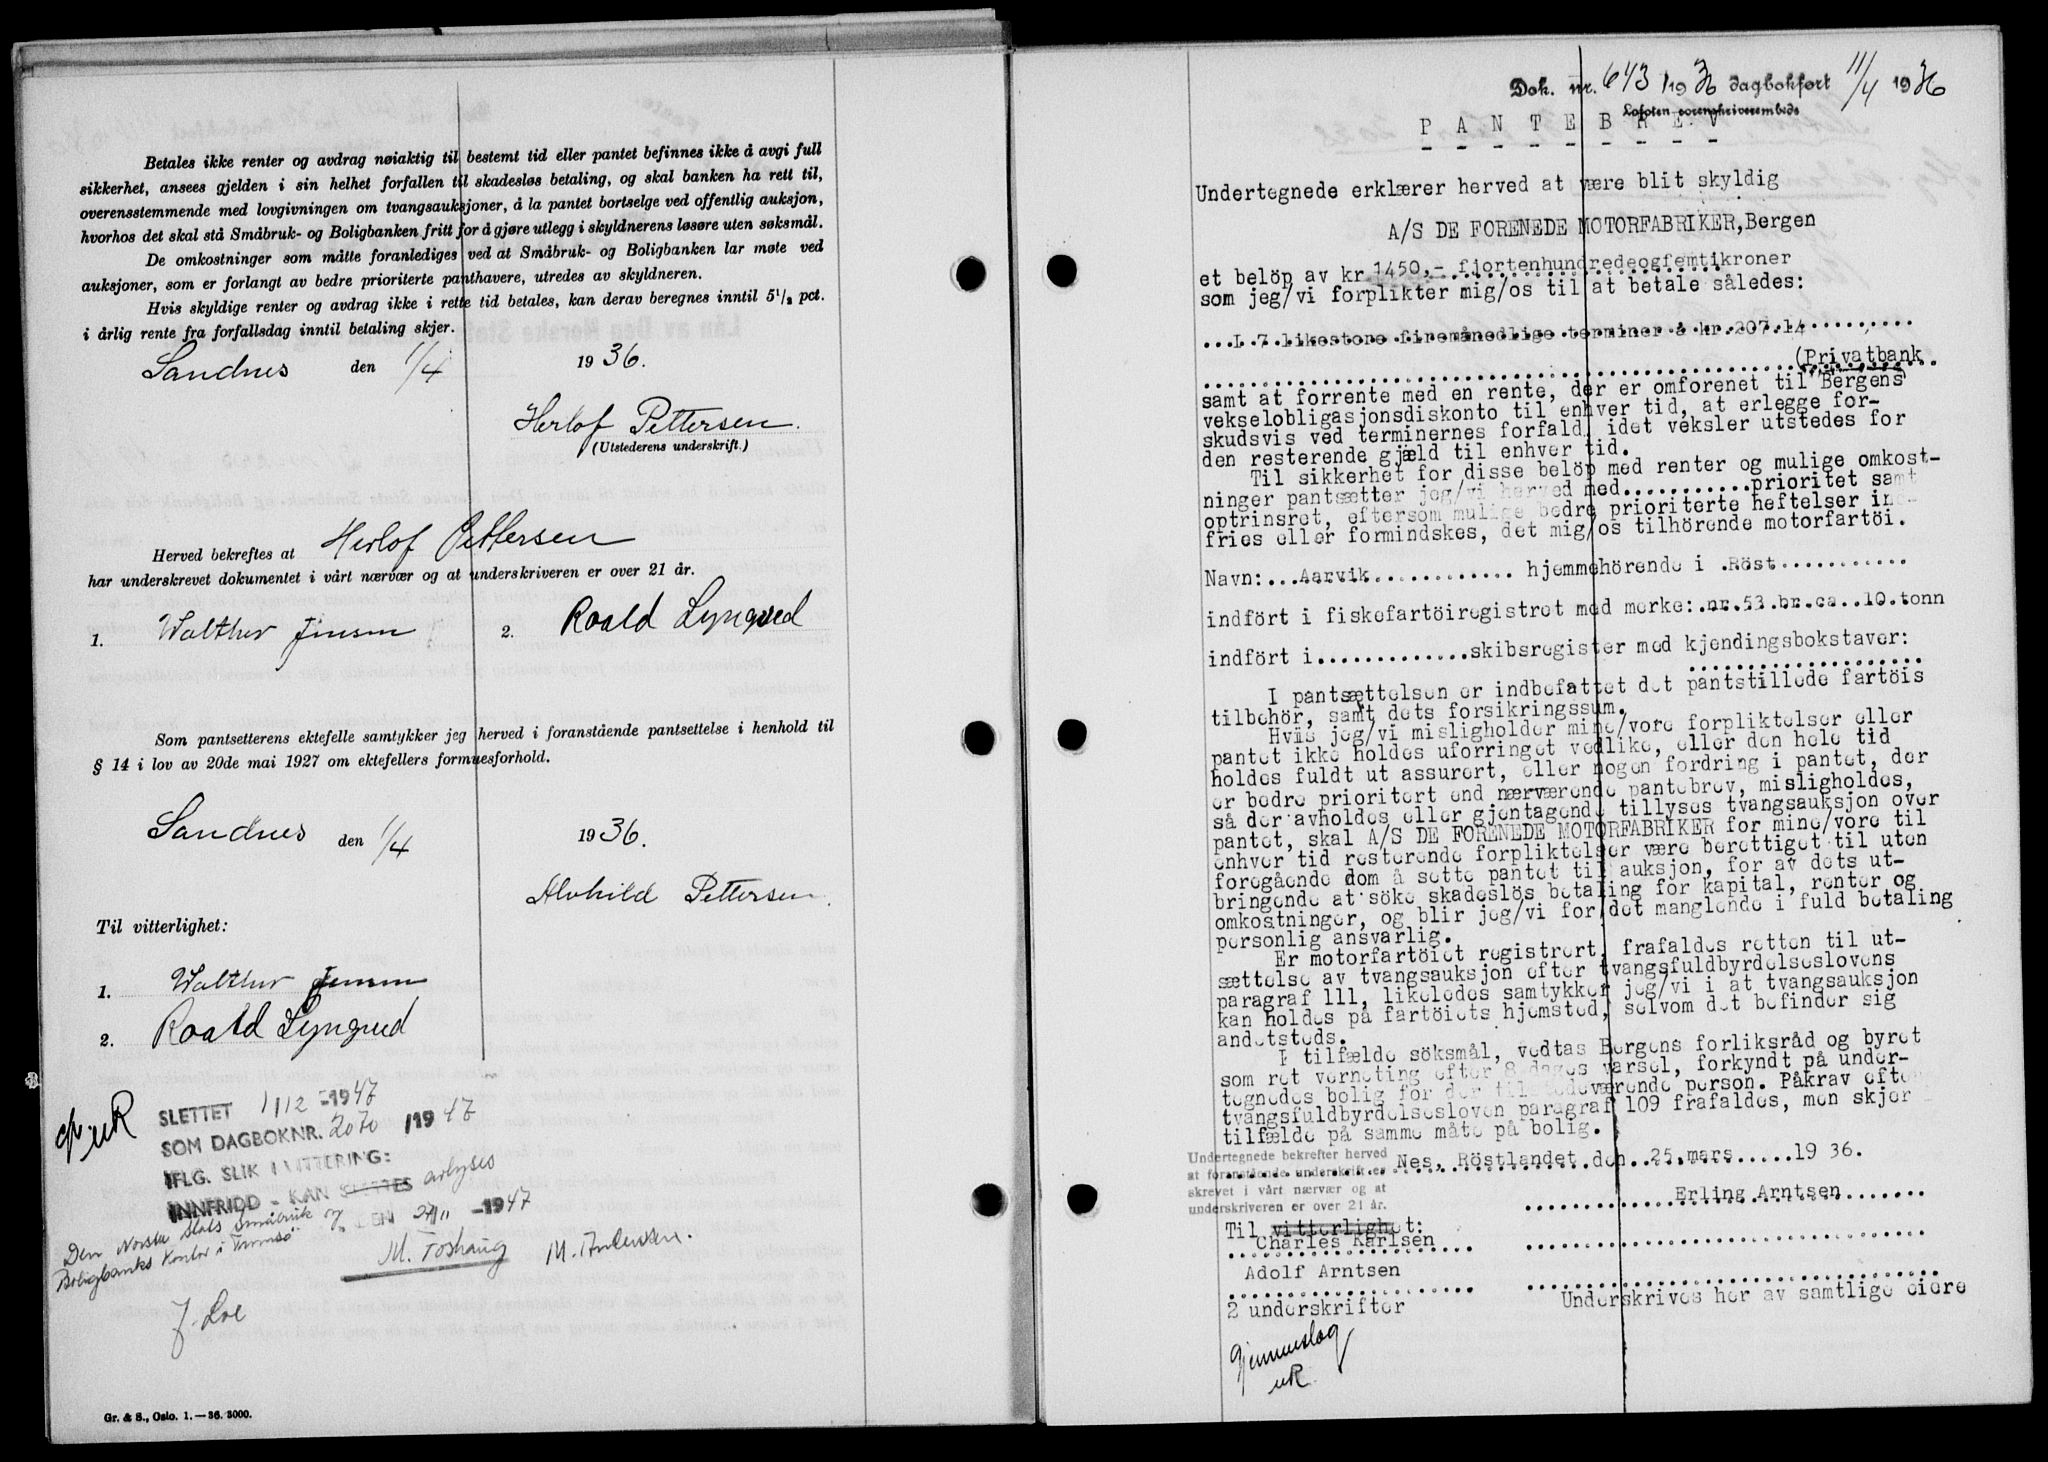 Betales ikke renter og avdrag nøiaktig til bestemt tid eller pantet befinnes ikke å avgi full
sikkerhet, ansees gjelden i sin helhet forfallen til skadesløs betaling, og skal banken ha rett til,
overensstemmende med lovgivningen om tvangsauksjoner, å la pantet bortselge ved offentlig auksjon,
hvorhos det skal stå Småbruk- og Boligbanken fritt for å gjøre utlegg i skyldnerens løsøre uten søksmål.
De omkostninger som måtte foranlediges ved at Småbruk- og Boligbanken lar møte ved
auksjoner, som er forlangt av bedre prioriterte panthavere, utredes av skyldneren.
Hvis skyldige renter og avdrag ikke i rette tid betales, kan derav beregnes inntil 5 1/2 pct.
i årlig rente fra forfallsdag inntil betaling skjer.
Sandnes den 1/4 1936.
Herlof Pettersen.
(Utstederens underskrift.)
Herved bekreftes at Herlof Pettersen
har underskrevet dokumentet i vårt nærvær og at underskriveren er over 21 år.
1. Walther Jensen 2. Roald Lyngved
Som pantsetterens ektefelle samtykker jeg herved i foranstående pantsettelse i henhold til
§ 14 i lov av 20de mai 1927 om ektefellers formuesforhold.
Sandnes den 1/4 1936.
Alvhild Pettersen.
Til vitterlighet:
1. Walther Jensen
2. Roald Lyngved
SLETTET 1/12 -1947
SOM DAGBOKNR. 2070 /1947
IFLG. SLIK KVITTERING:
INNFRIDD - KAN SLETTES avlyses
DEN 27/11 -1947
Den Norske Stats Småbruk og
Boligbanks Kontor i Tromsø
M. Toshaug M. Andersen.
J. Loe
Gr. & S., Oslo. 1.—36. 3000.
Dok. nr. 643 /1936 dagbokført 11/4 1936
Lofoten sorenskriverembede
PANTEBREV
Undertegnede erklærer herved at være blit skyldig
A/S DE FORENEDE MOTORFABRIKER, Bergen
et belöp av kr 1450,- fjortenhundredeogfemtikroner
som jeg/vi forplikter mig/os til at betale således:
...I 7 likestore firemånedlige terminer å kr. 207.14
(Privatbank
samt at forrente med en rente, der er omforenet til Bergens
vekselobligasjonsdiskonto til enhver tid, at erlegge for-
skudsvis ved terminernes forfald, idet veksler utstedes for
den resterende gjæld til enhver tid.
Til sikkerhet for disse belöp med renter og mulige omkost-
ninger pantsætter jeg/vi herved med...........prioritet samt
optrinsret, eftersom mulige bedre prioriterte heftelser ind-
fries eller formindskes, det mig/os tilhörende motorfartöi.
Navn:...Aarvik.............. hjemmehörende i .Röst...........
indfört i fiskefartöiregistret med merke: nr.53.br.ca..10.tonn
indfört i..............skibsregister med kjendingsbokstaver:
I pantsættelsen er indbefattet det pantstillede fartöis
tilbehör, samt dets forsikringssum.
Hviis jeg/vi misligholder mine/vore forpliktelser eller
pantet ikke holdes uforringet vedlike, eller den hele tid
holdes fuldt ut assurert, eller nogen fordring i pantet, der
er bedre prioritert end nærværende pantebrev, misligholdes,
så der avholdes eller gjentagende tillyses tvangsauksjon over
pantet, skal A/S DE FORENEDE MOTORFABRIKER for mine/vore til
enhver tid resterende forpliktelser være berettiget til uten
foregående dom å sette pantet til auksjon, for av dets ut-
bringende at söke skadeslös betaling for kapital, renter og
omkostninger, og blir jeg/vi for det manglende i fuld betaling
personlig ansvarlig.
Er motorfartöiet registrert, frafaldes retten til ut-
sættelse av tvangsauksjon efter tvangsfuldbyrdelseslovens
paragraf 111, likeledes samtykker jeg/vi i at tvangsauksjon
kan holdes på fartöiets hjemsted, selvom det befinder sig
andetsteds.
I tilfælde söksmål, vedtas Bergens forliksråd og byret
som ret verneting efter 8 dages varsel, forkyndt på under-
tegnedes bolig for der tilstedeværende person. Påkrav efter
tvangsfuldbyrdelsesloven paragraf 109 frafaldes, men skjer
tilfælde på samme måte på bolig.
Undertegnede bekrefter herved
at foranstående underskrift er
skrevet i vårt nærvær og at
underskriveren er over 21 år.
Nes, Röstlandet den..25.mars.....19 36.
Erling Arntsen
Til vitterlighet:
Charles Karlsen
Adolf Arntsen
2 underskrifter
Underskrives her av samtlige eiere
Gjennemslag